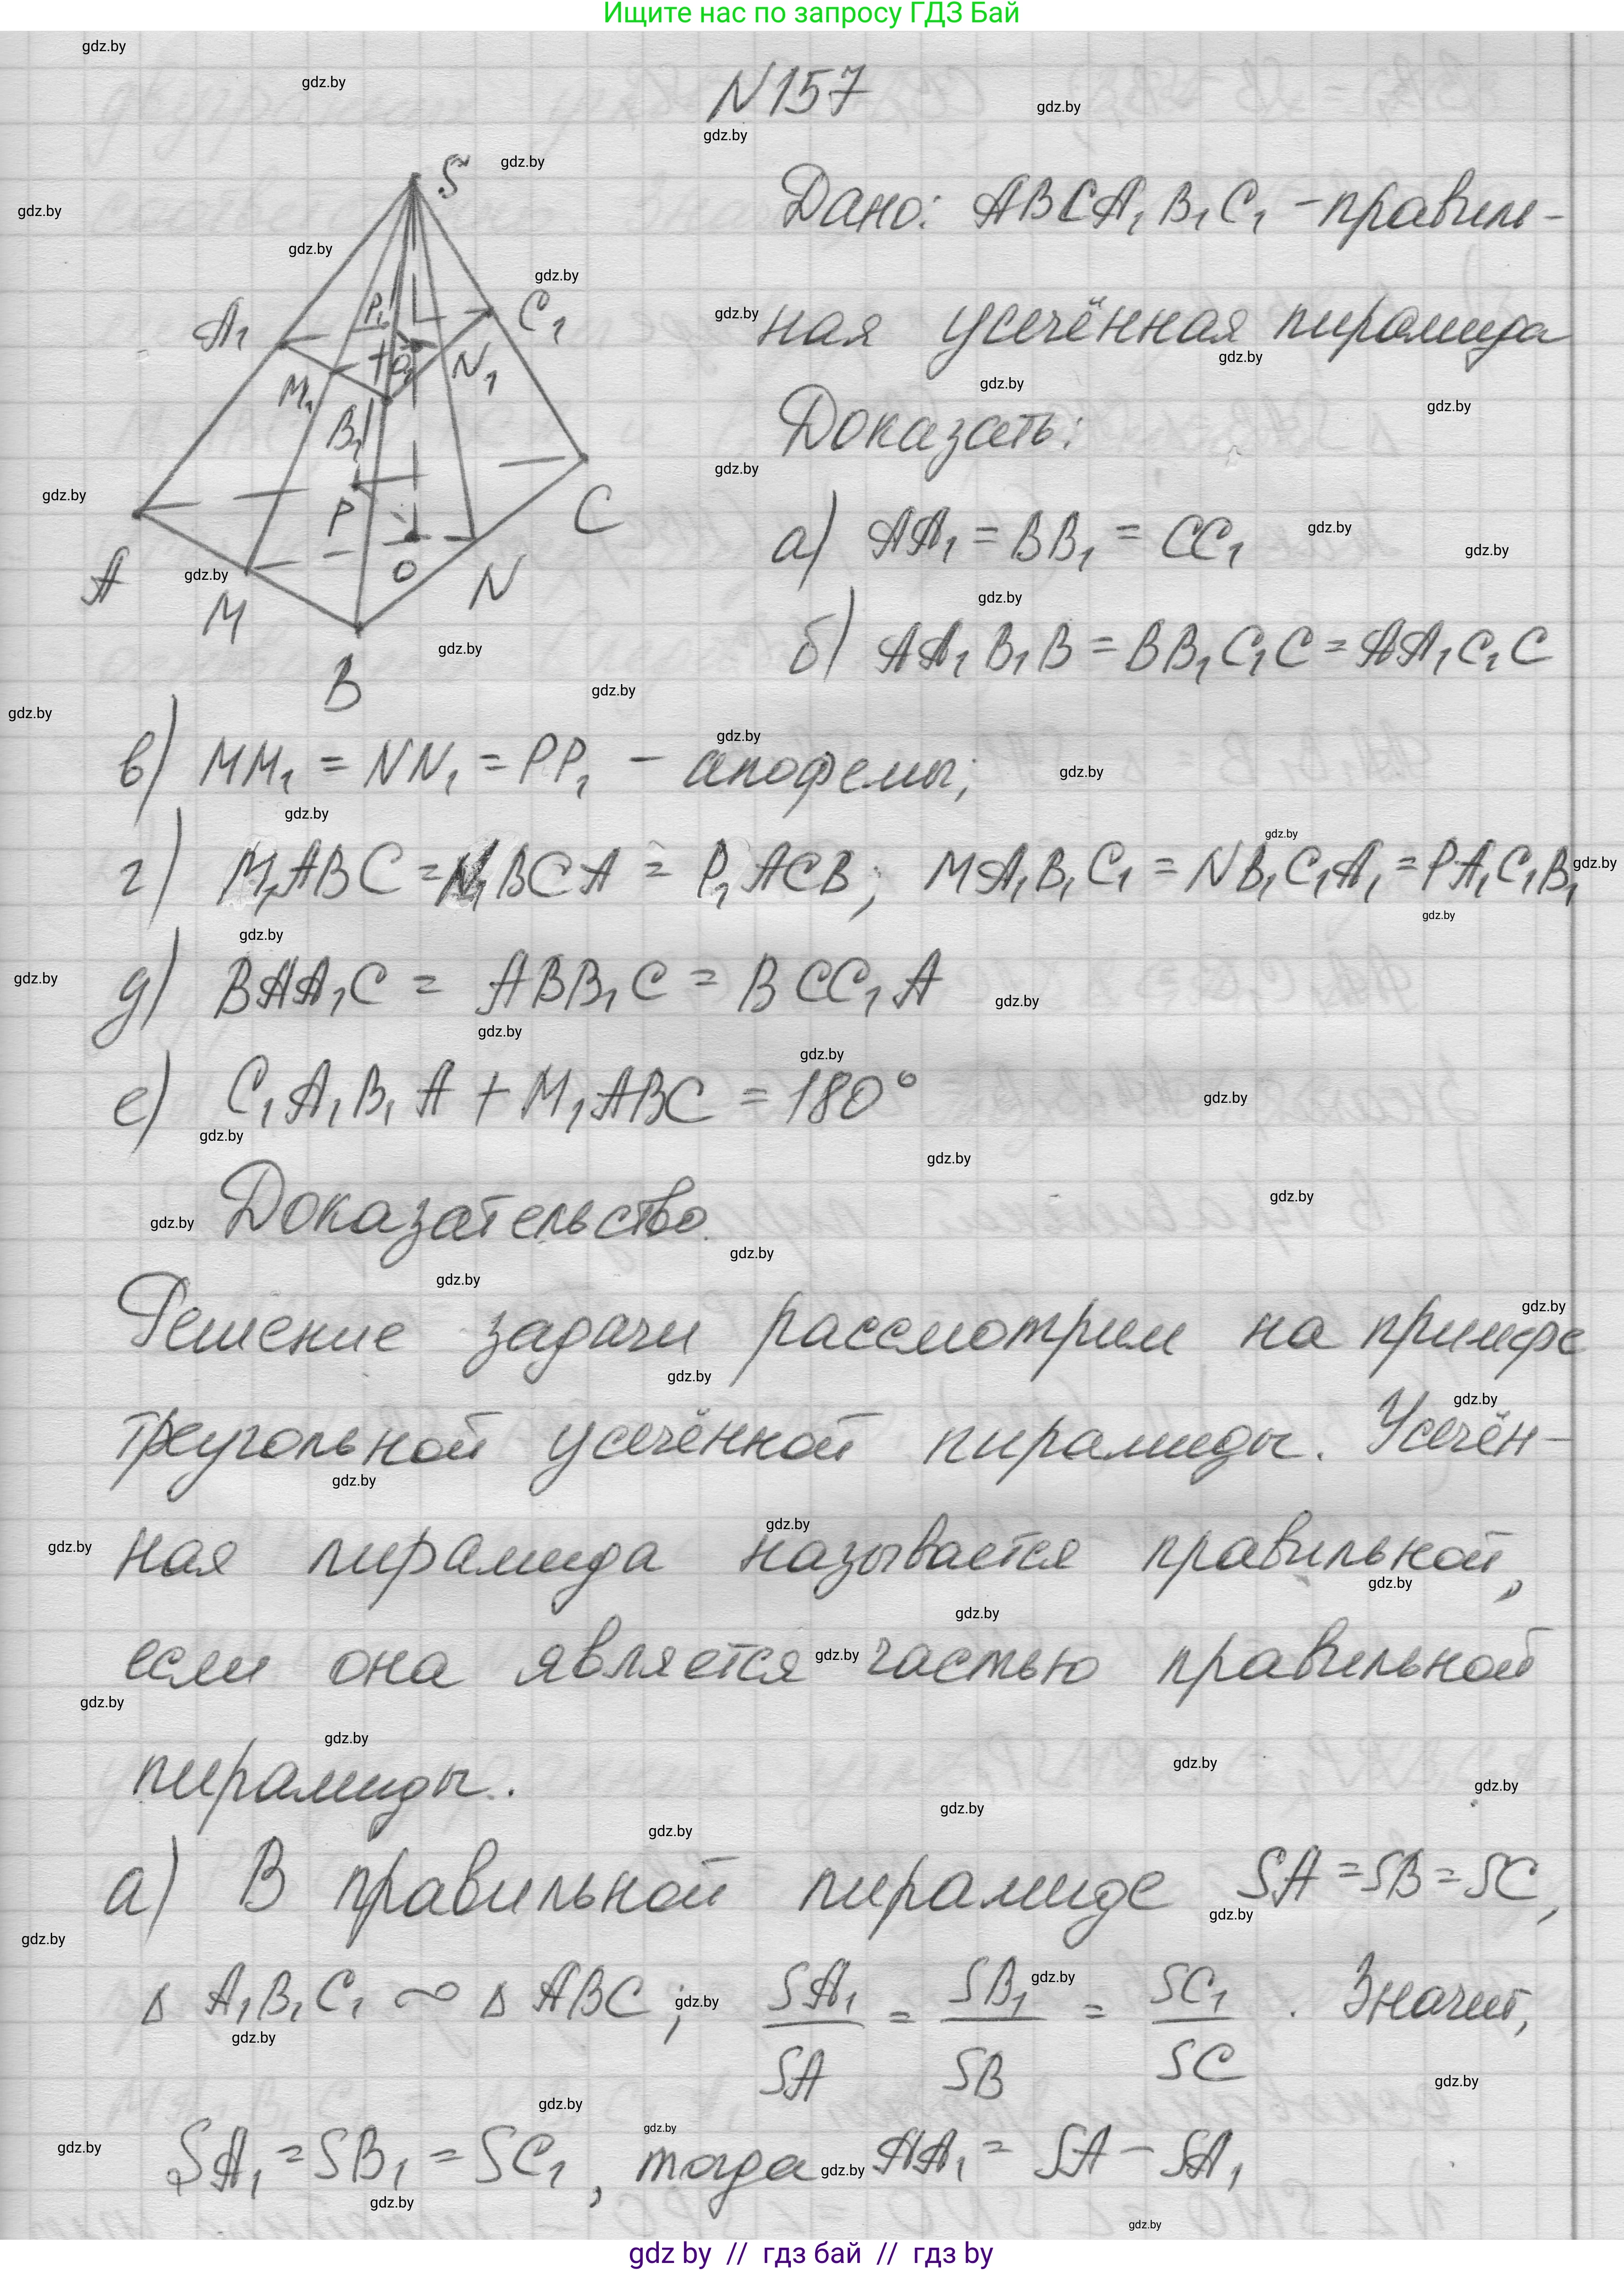 Ищите нас по запросу ГДЗ Бай
N157
Дано: ABCA₁B₁C₁ - правиль-
ная усечённая пирамида
Доказать:
а) AA₁ = BB₁ = CC₁
б) AA₁B₁B = BB₁C₁C = AA₁C₁C
S
A₁
P₁
C₁
M₁
O₁
N₁
B₁
P
C
A
O
M
N
B
в) MM₁ = NN₁ = PP₁ - апофемы;
г) M₁ABC = N₁BCA = P₁ACB; MA₁B₁C₁ = NB₁C₁A₁ = PA₁C₁B₁
д) BAA₁C = ABB₁C = BCC₁A
е) C₁A₁B₁A + M₁ABC = 180°
Доказательство.
Решение задачи рассмотрим на примере
треугольной усечённой пирамиды. Усечён-
ная пирамида называется правильной,
если она является частью правильной
пирамиды.
а) В правильной пирамиде SA = SB = SC,
Δ A₁B₁C₁ ∾ Δ ABC; SA₁/SA = SB₁/SB = SC₁/SC. Значит,
SA₁ = SB₁ = SC₁, тогда AA₁ = SA - SA₁
gdz by // гдз бай // гдз by